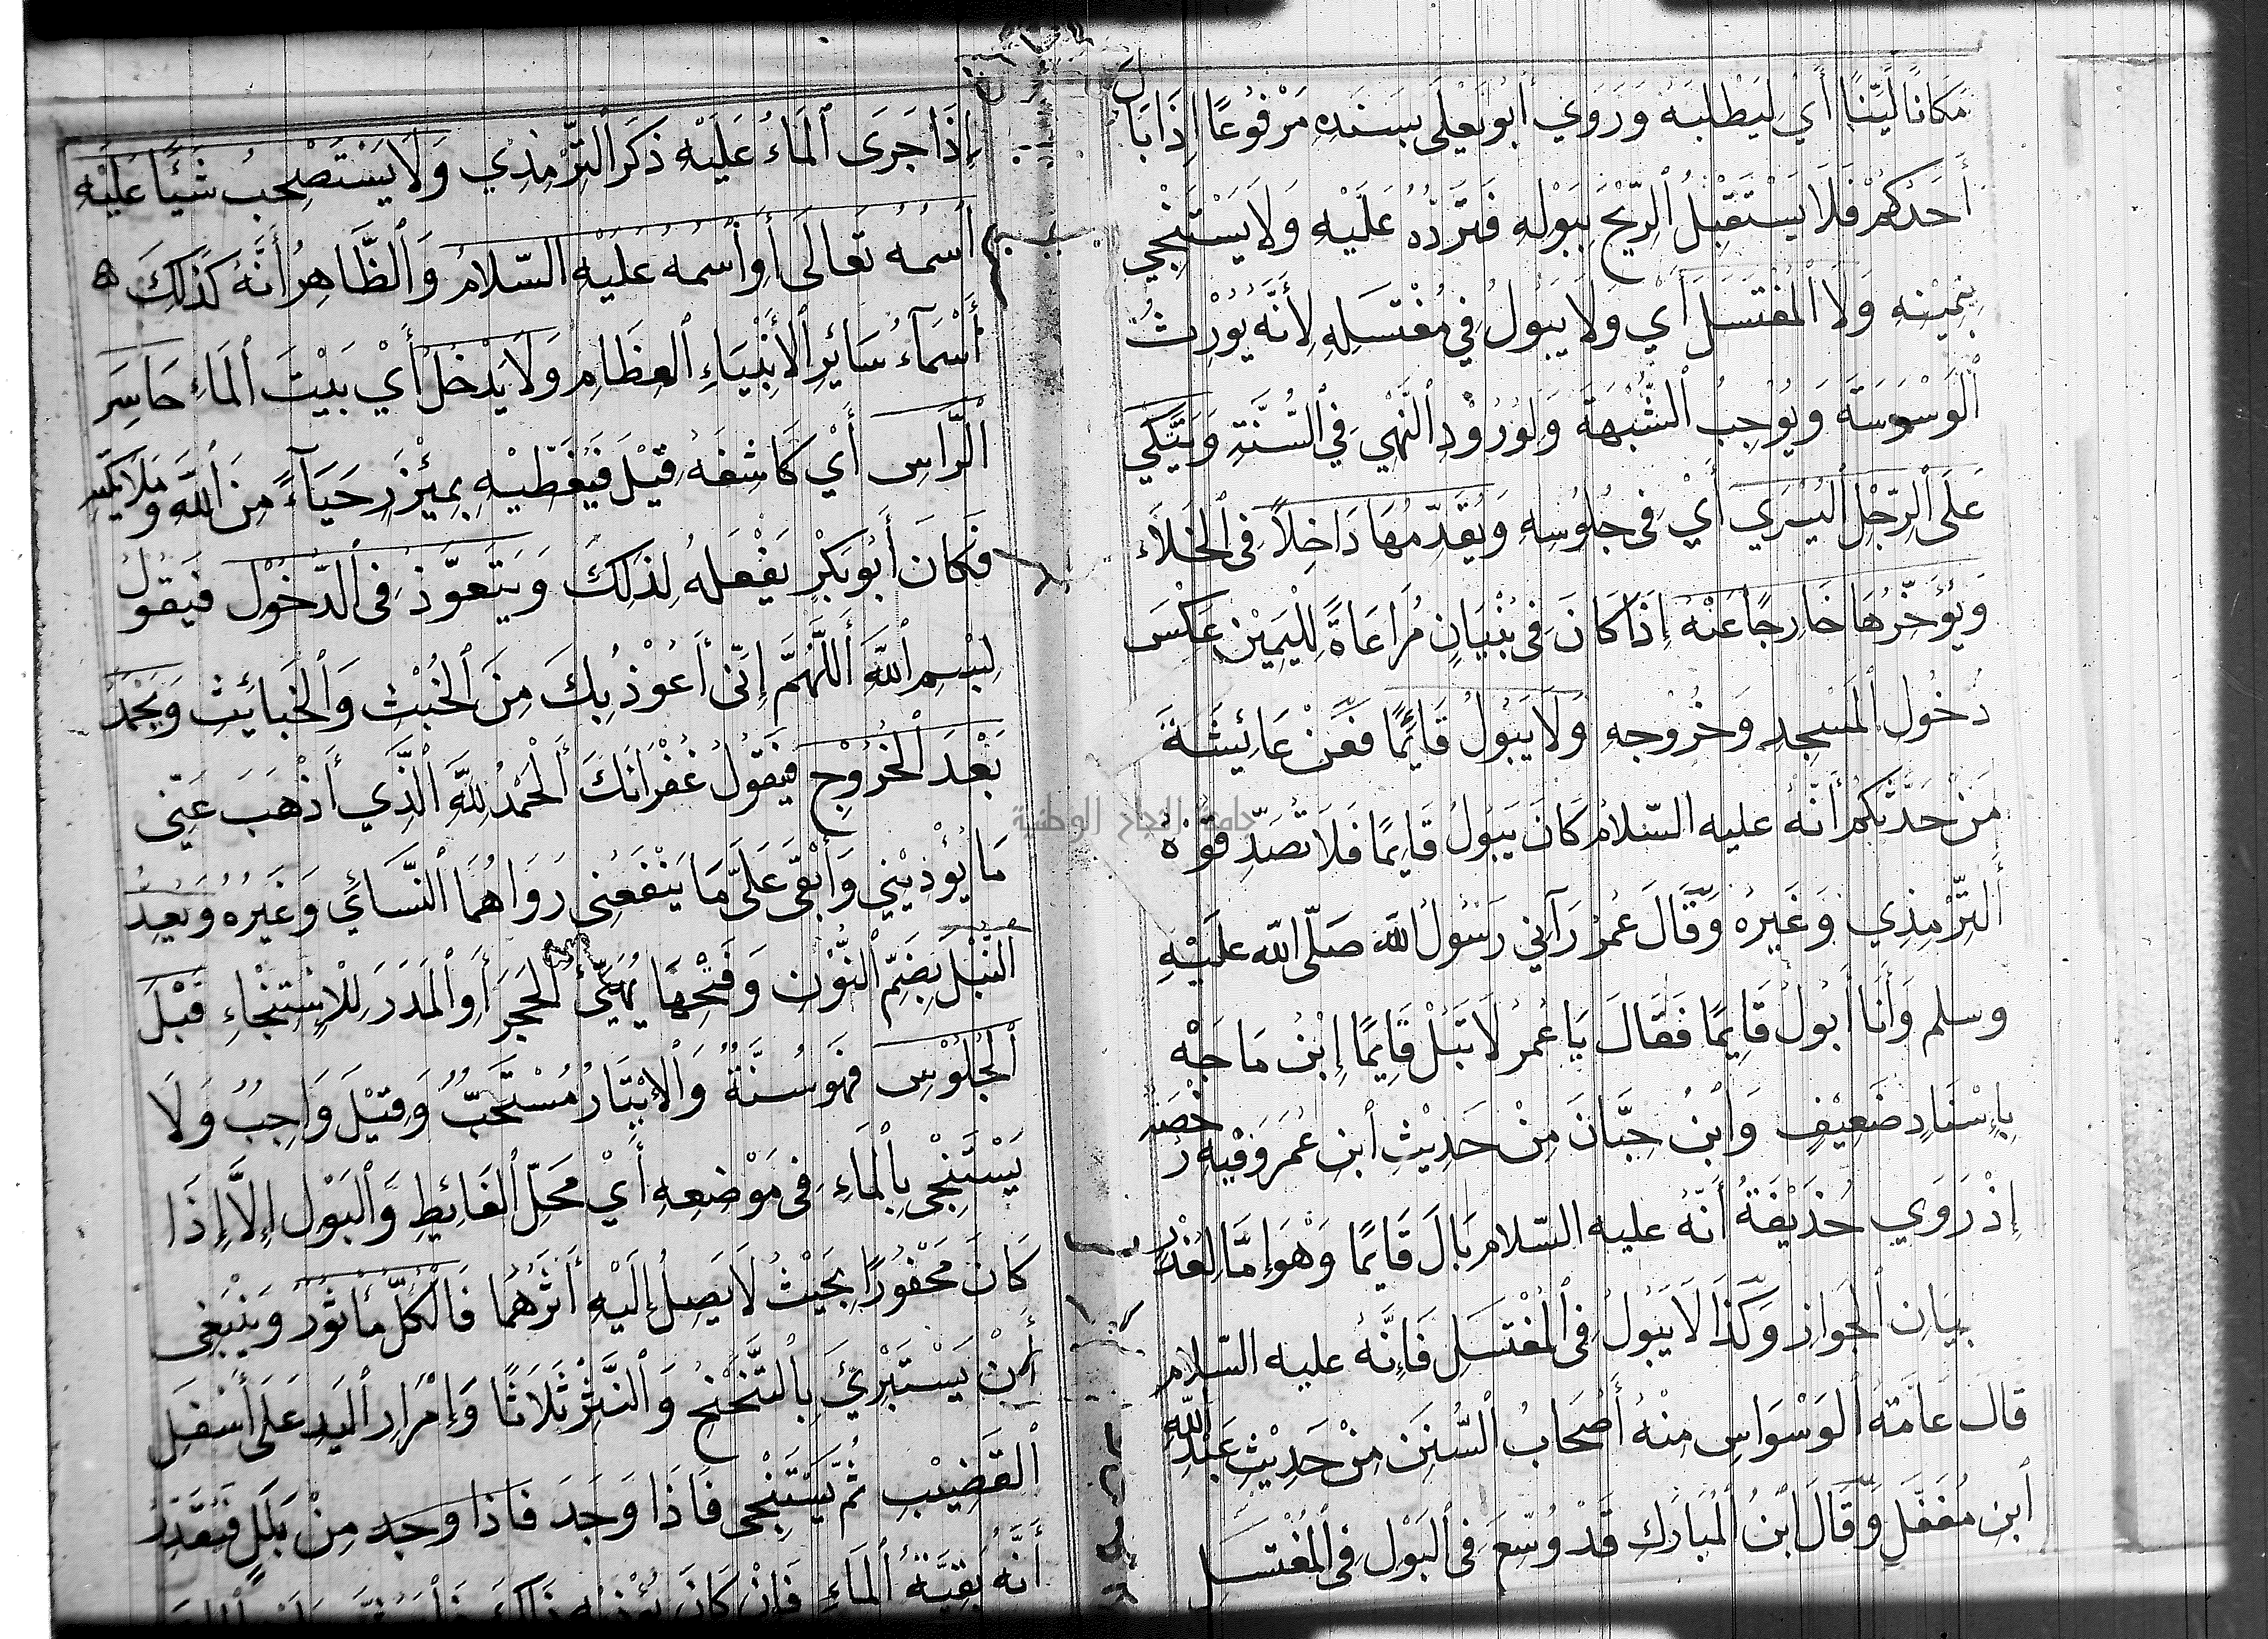 مَكَانًا لَيِّنًا أَيْ لِيَطْلُبَهُ وَرَوَي أَبُو يَعْلَى بِسَنَدِهِ مَرْفُوعًا إِذَا بَالَ
أَحَدُكُمْ فَلَا يَسْتَقْبِلُ الرِّيْحَ بِبَوْلِهِ فَتَرُدَّهُ عَلَيْهِ وَلَا يَسْتَنْجِي
بِيَمِيْنِهِ وَلَا المُغْتَسَلَ أَيْ وَلَا يَبُولُ فِي مُغْتَسَلِهِ لِأَنَّهُ يُوْرِثُ
الْوَسْوَسَةَ وَيُوْجِبُ الشُّبْهَةَ وَلِوُرُوْدِ النَّهْيِ فِي السُّنَّةِ وَيَتَّكِي
عَلَى الرِّجْلِ الْيُسْرَي أَيْ فِى جُلُوسِهِ وَيُقَدِّمُهَا دَاخِلاً فِى الْخَلَاءِ
وَيُؤَخِّرُهَا خَارِجًا عَنْهُ إِذَا كَانَ فِى بُنْيَانٍ مُرَاعَاةً لِلْيَمِيْنِ عَكْسَ
دُخُوْلِ الْمَسْجِدِ وَخُرُوْجِهِ وَلَا يَبُوْلُ قَائِمًا فَعَنْ عَائِشَةَ
مَنْ حَدَّثَكُمْ أَنَّهُ عليه السّلامُ كَانَ يَبُوْلُ قَايِمًا فَلَا تُصَدِّقُوْهُ
التِّرْمِذِي وَغَيْرُهُ وَقَالَ عُمَرُ رَآنِي رَسُوْلُ اللّه صَلّى اللّه عَلَيْهِ
وسلم وَأَنَا أَبُوْلُ قَايِمًا فَقَالَ يَا عُمَرُ لَا تَبُلْ قَايِمًا إِبْنُ مَاجَهْ
بِإِسْنَادٍ ضَعِيْفٍ وَابْنُ حِبَّانَ مِنْ حَدِيْثِ ابْنِ عُمَرَ وَفِيْهِ رُخْصَة
إِذْ رَوَي حُذَيْفَةُ أَنَّهُ عليه السّلام بَالَ قَايِمًا وَهْوَ إِمَّا لِعُذْرٍ
بَيَانِ الْجَوَازِ وَكَذَا لَا يَبُوْلُ فِى الْمُغْتَسَلِ فَإِنَّهُ عليه السّلام
قَالَ عَامَّةُ الْوَسْوَاسِ مِنْهُ أَصْحَابُ السُّنَنِ مِنْ حَدِيْثِ عَبْدِ اللّٰهِ
ابْنِ مُغَفَّلٍ وَقَالَ ابْنُ الْمُبَارَكِ قَدْ وُسِّعَ فِى الْبَوْلِ فِى الْمُغْتَسَلِ
إِذَا جَرَى الْمَاءُ عَلَيْهِ ذَكَرَ التِّرْمِذِي وَلَا يَسْتَصْحِبُ شَيْئًا عَلَيْهِ
اسْمُهُ تَعَالَى أَوِ اسْمُهُ عَلَيْهِ السّلَامُ وَالظَّاهِرُ أَنَّهُ كَذَلِكَ
أَسْمَآءُ سَائِرِ الأَنْبِيَاءِ الْعِظَامِ وَلَا يَدْخُلُ أَيْ بَيْتَ الْمَاءِ حَاسِرَ
الرَّاسِ أَيْ كَاشِفَهُ قِيْلَ فَيُغَطِّيْهِ بِمِئْزَرٍ حَيَآءً مِنَ اللّٰهِ وَمَلَايِكَتِهِ
فَكَانَ أَبُوْبَكْرٍ يَفْعَلُهُ لِذَلِكَ وَيَتَعَوَّذُ فِى الدُّخُوْلِ فَيَقُوْلُ
بِسْمِ اللّٰهِ أَللَّهُمَّ إِنِّى أَعُوْذُ بِكَ مِنَ الْخُبْثِ وَالْخَبَايِثِ وَيَحْمَدُ
بَعْدَ الْخُرُوْجِ فَيَقُوْلُ غُفْرَانَكَ أَلْحَمْدُ لِلّٰهِ الَّذِي أَذْهَبَ عَنِّى
مَا يُؤْذِيْنِي وَأَبْقَى عَلَىَّ مَا يَنْفَعُنِى رَوَاهُمَا النَّسَائَي وَغَيْرُهُ وَيُعِدُّ
النُّبَلَ بِضَمِّ النُّوْنِ وَفَتْحِهَا يُهَيِّئُ الْحَجَرَ أَوِ الْمَدَرَ لِلْإِسْتِنْجَاءِ قَبْلَ
الْجُلُوْسِ فَهُوَ سُنَّةٌ وَالإِيْتَارُ مُسْتَحَبٌّ وَقِيْلَ وَاجِبٌ وَلَا
يَسْتَنْجِى بِالْمَاءِ فِى مَوْضِعِهِ أَيْ مَحَلِّ الْغَائِطِ وَالْبَوْلِ إِلَّا إِذَا
كَانَ مَحْفُوْرًا بِحَيْثُ لَا يَصِلُ إِلَيْهِ أَثَرُهُمَا فَالْكُلُّ مَأْثُوْرٌ وَيَنْبَغِى
أَنْ يَسْتَبْرِئَ بِالتَّنَحْنُحِ وَالنَّتْرِ ثَلَاثًا وَإِمْرَارِ الْيَدِ عَلَى أَسْفَلِ
الْقَضِيْبِ ثُمَّ يَسْتَنْجِى فَإِذَا وَجَدَ فَاذا وجد مِنْ بَلَلٍ فَيُقَدِّرُ
أَنَّهُ بَقِيَّةُ الْمَاءِ فَإِنْ كَانَ
جامعة النجاح الوطنية